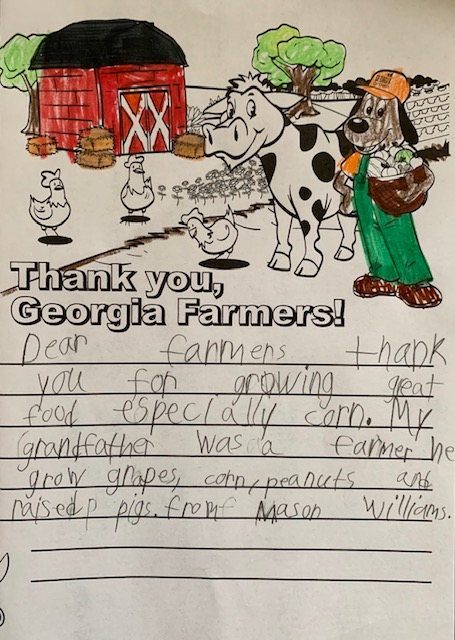 Thank you,
Georgia Farmers!
Dear farmers thank
you for growing great
food especially corn. My
grandfather was a farmer he
grow grapes, corn, peanuts and
raised pigs. from Mason Williams.